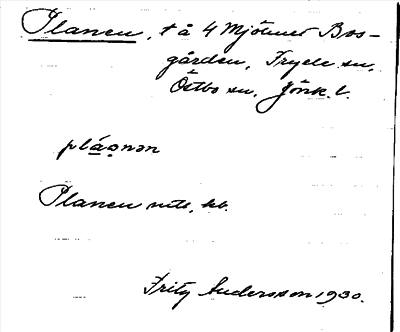 Planen, t å 4 Mjölner Bos-
gården, Tryele sn,
Östbo sn, Jönk. l.
plánən
Planen mtl, kb.
Fritz Andersson 1930.